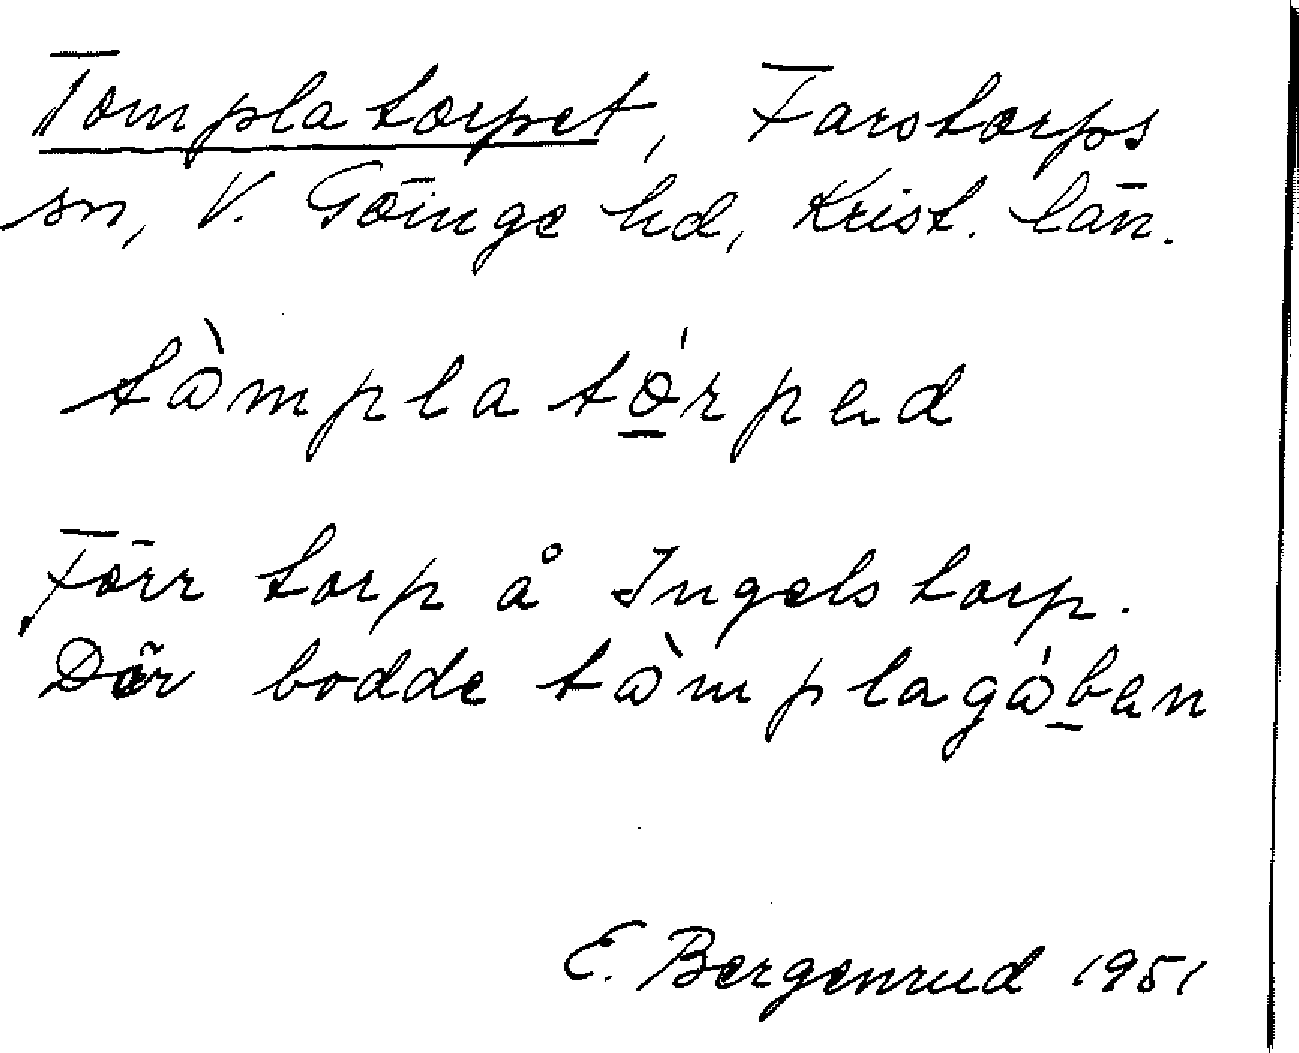 Tomplatorpet, Farstorps
sn, V. Göinge hd, Krist. län.
tòmplatórpəd
Förr torp å Ingelstorp.
Där bodde tòmplagóbən
E. Bergenrud 1951